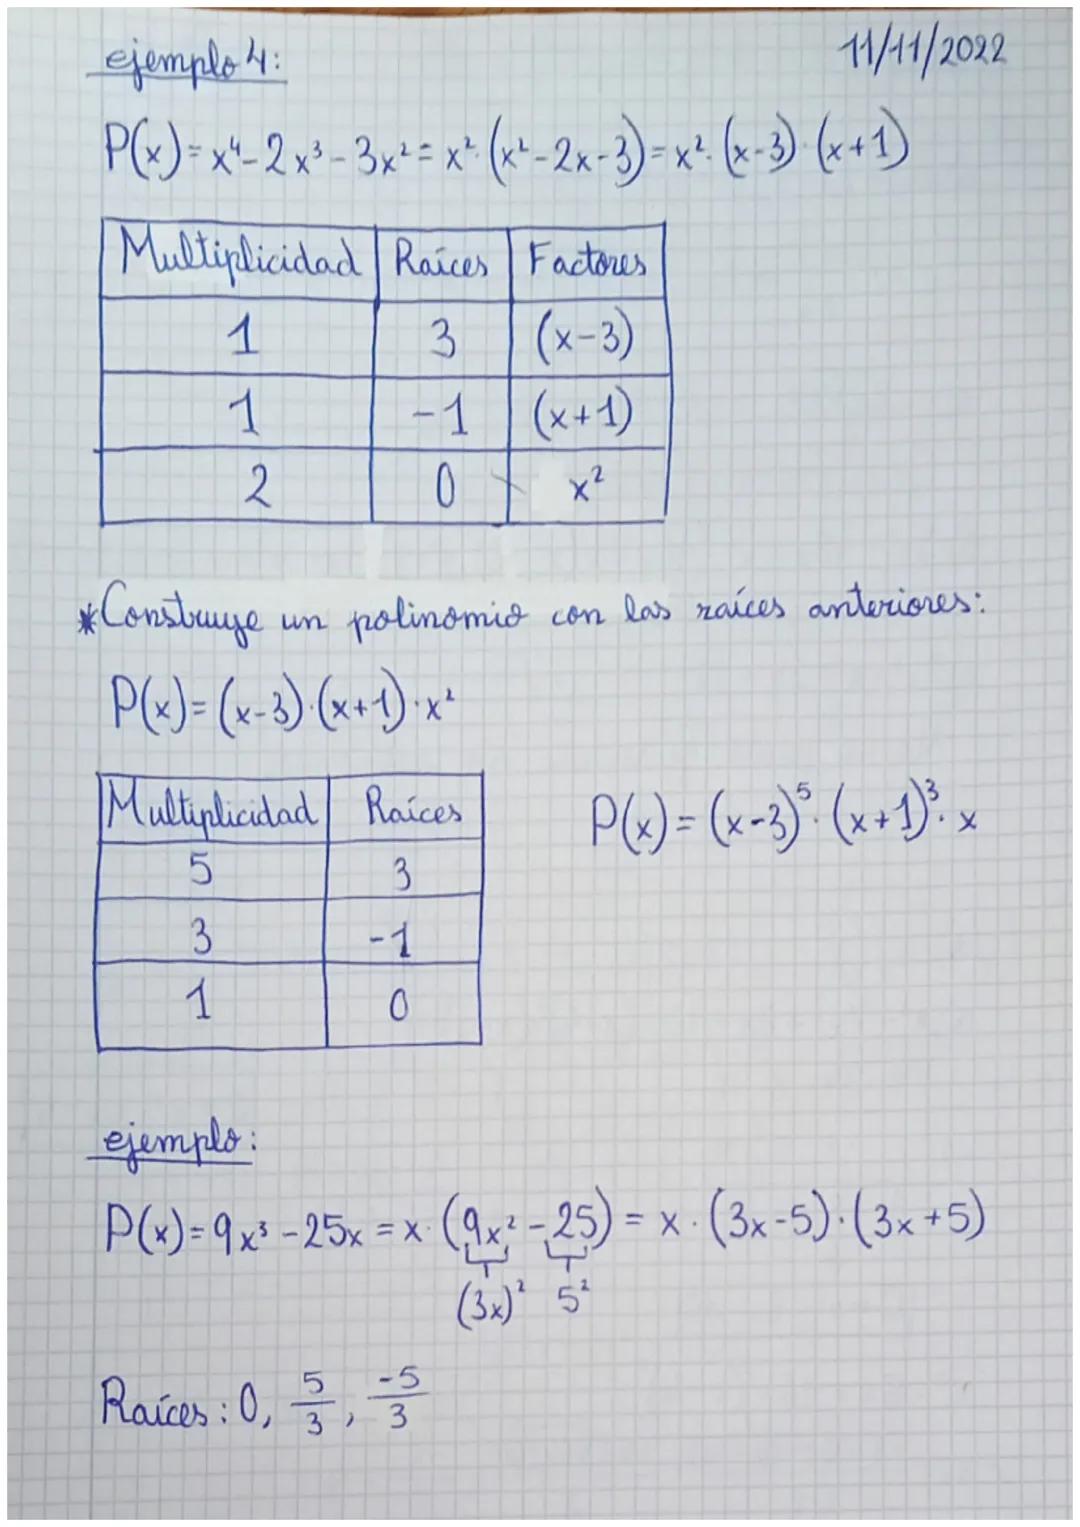 ejemplo 4:
11/11/2022
P(x) = x⁴ - 2x³ - 3x² = x² · (x² - 2x - 3) = x² · (x-3) · (x+1)
Multiplicidad Raíces Factores
1 3 (x-3)
1 -1 (x+1)
2 0 x²
*Construye un polinomio con las raíces anteriores:
P(x) = (x-3) · (x+1) · x²
Multiplicidad Raíces
5 3
3 -1
1 0
P(x) = (x-3)⁵ · (x+1)³ · x
ejemplo:
P(x) = 9x³ - 25x = x · (9x² - 25) = x · (3x-5) · (3x+5)
(3x)² 5²
Raíces: 0, 5/3, -5/3